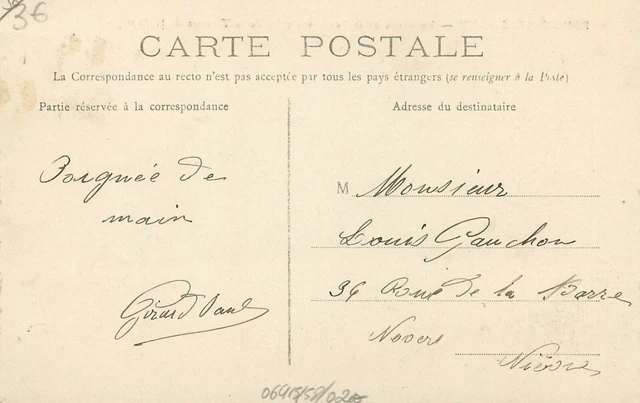 36
CARTE POSTALE
La Correspondance au recto n'est pas acceptée par tous les pays étrangers (se renseigner à la Poste)
Partie réservée à la correspondance
Adresse du destinataire
Poignée de
main
Girard Paul
M Monsieur
Louis Gauchon
36 Rue de la Barre
Nevers
Nièvre